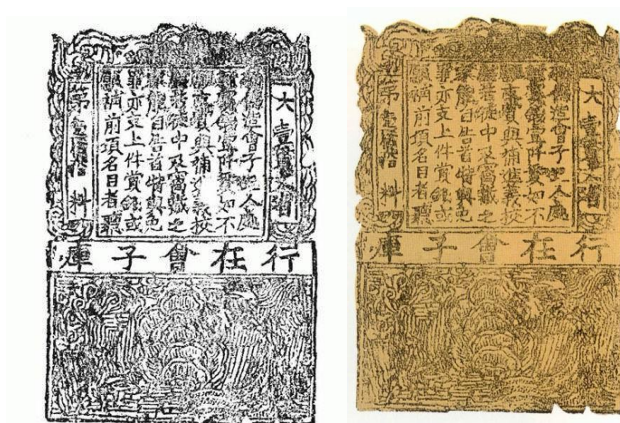 大壹貫文省
敕偽造會子犯人處
斬賞錢壹阡貫如不
願支賞與補進義校
尉若徒中及窩藏之
家能自告首特與免
罪亦支上件賞錢或
願補前項名目者聽
第料
行在會子庫
大壹貫文省
敕偽造會子犯人處
斬賞錢壹阡貫如不
願支賞與補進義校
尉若徒中及窩藏之
家能自告首特與免
罪亦支上件賞錢或
願補前項名目者聽
第料
行在會子庫